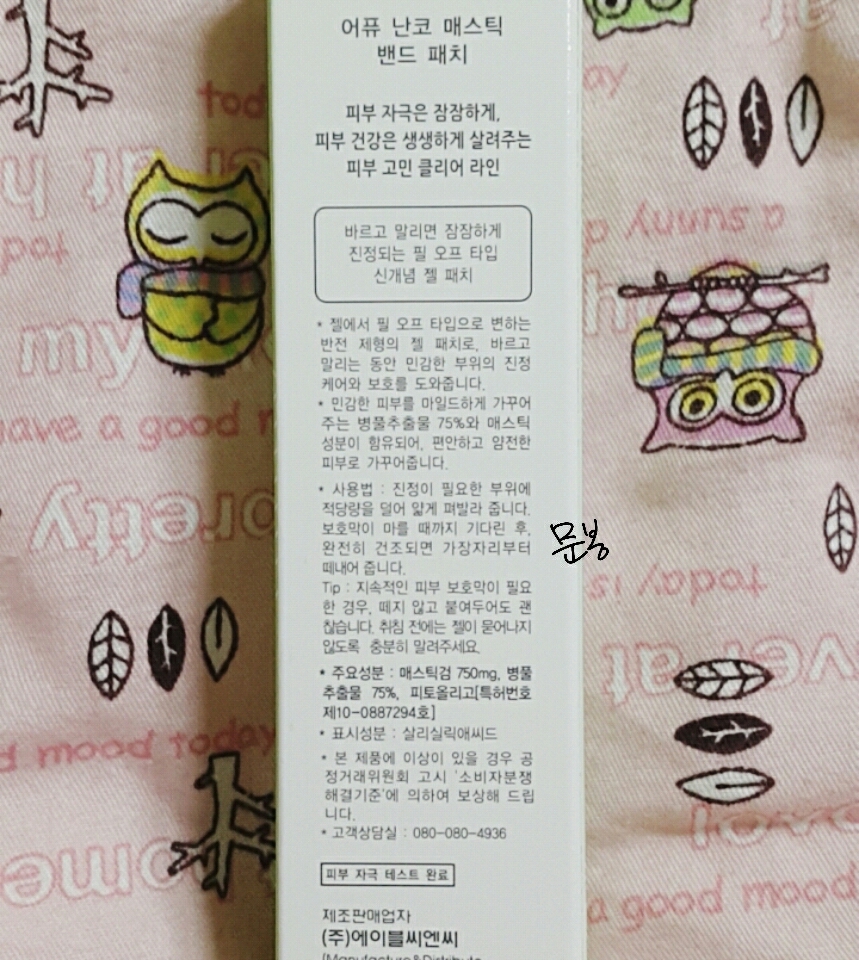 어퓨 난코 매스틱
밴드 패치
피부 자극은 잠잠하게,
피부 건강은 생생하게 살려주는
피부 고민 클리어 라인
바르고 말리면 잠잠하게
진정되는 필 오프 타입
신개념 젤 패치
* 젤에서 필 오프 타입으로 변하는
반전 제형의 젤 패치로, 바르고
말리는 동안 민감한 부위의 진정
케어와 보호를 도와줍니다.
* 민감한 피부를 마일드하게 가꾸어
주는 병풀추출물 75%와 매스틱
성분이 함유되어, 편안하고 얌전한
피부로 가꾸어줍니다.
* 사용법 : 진정이 필요한 부위에
적당량을 덜어 얇게 펴발라 줍니다.
보호막이 마를 때까지 기다린 후,
완전히 건조되면 가장자리부터
떼내어 줍니다.
Tip : 지속적인 피부 보호막이 필요
한 경우, 떼지 않고 붙여두어도 괜
찮습니다. 취침 전에는 젤이 묻어나지
않도록 충분히 말려주세요.
* 주요성분 : 매스틱검 750mg, 병풀
추출물 75%, 피토올리고[특허번호
제10-0887294호]
* 표시성분 : 살리실릭애씨드
* 본 제품에 이상이 있을 경우 공
정거래위원회 고시 '소비자분쟁
해결기준'에 의하여 보상해 드립
니다.
* 고객상담실 : 080-080-4936
피부 자극 테스트 완료
제조판매업자
(주)에이블씨엔씨
문봉
my
have a good
pretty
today is
a sunny
d mood today
a good mood